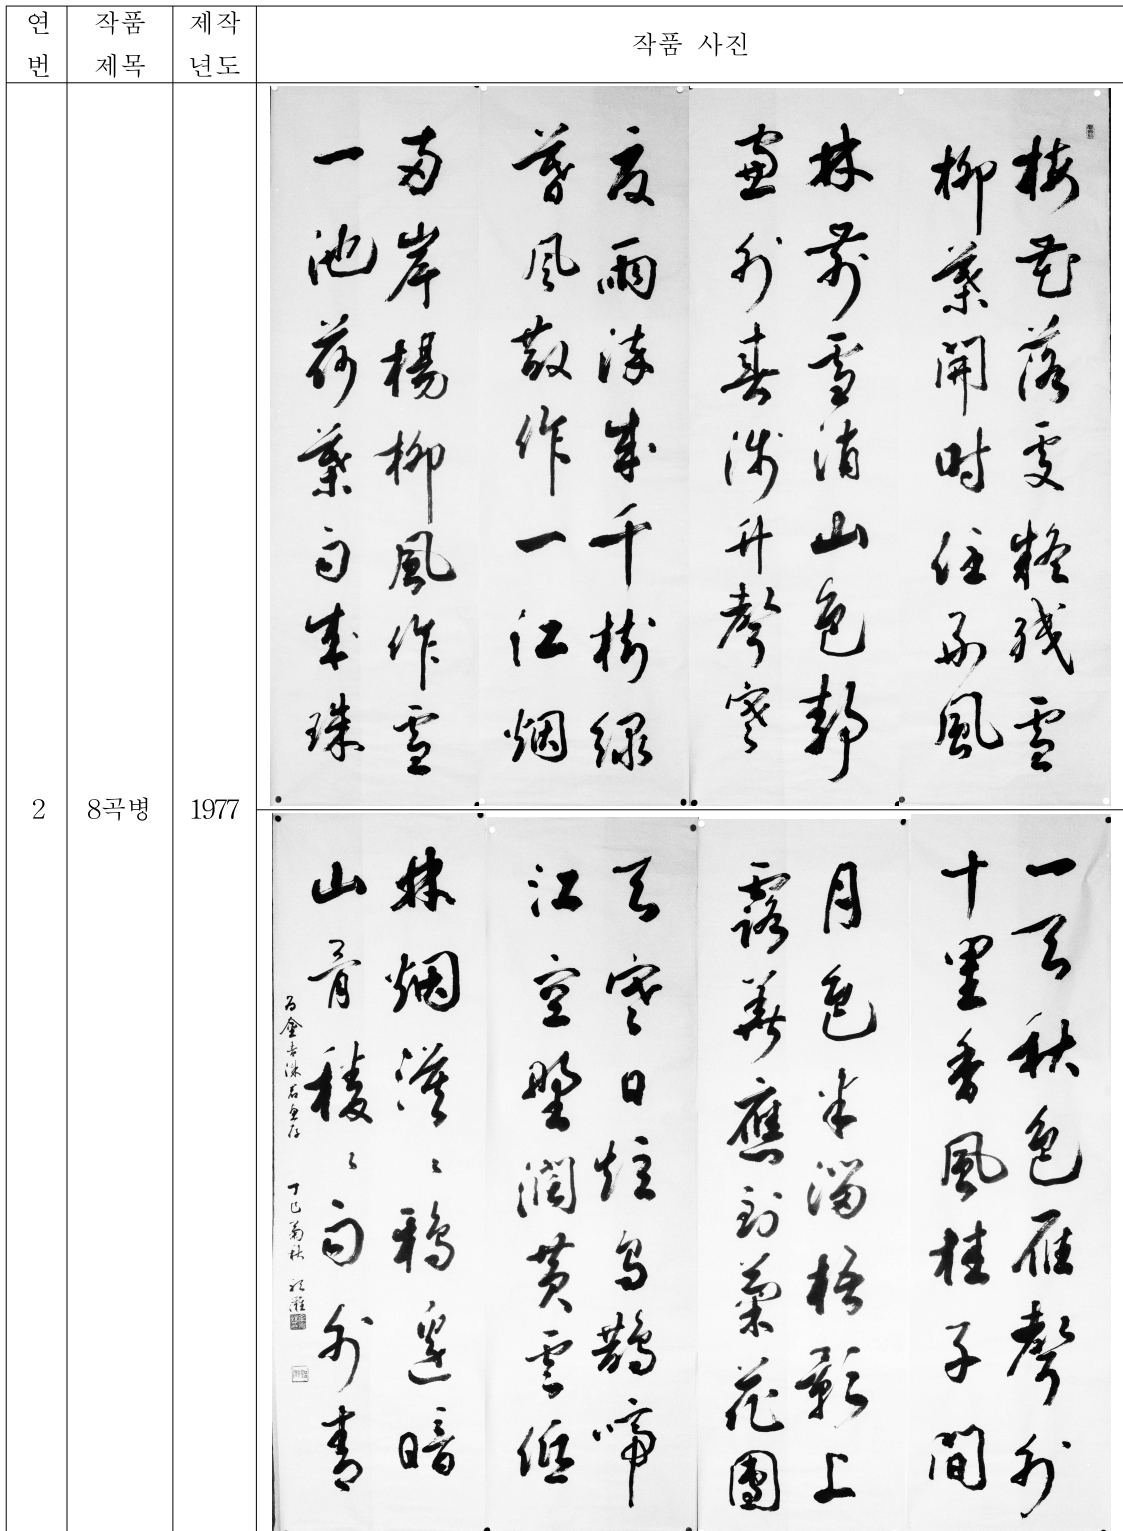 연번
작품 제목
제작 년도
작품 사진
2
8곡병
1977
梅花落處疑殘雪
柳葉開時任好風
林前雪消山色靜
窓外春淺竹聲寒
夜雨染成千樹綠
暮風散作一江烟
兩岸楊柳風作雪
一池荷葉雨成珠
一天秋色雁聲外
十里香風桂子間
月色半溜梧影上
露華應到菊花團
天寒日短烏鵲啼
江空野闊黃雲低
林烟漠〻鴉邊暗
山骨稜〻雨外青
為金吉洙君惠存 丁巳菊秋